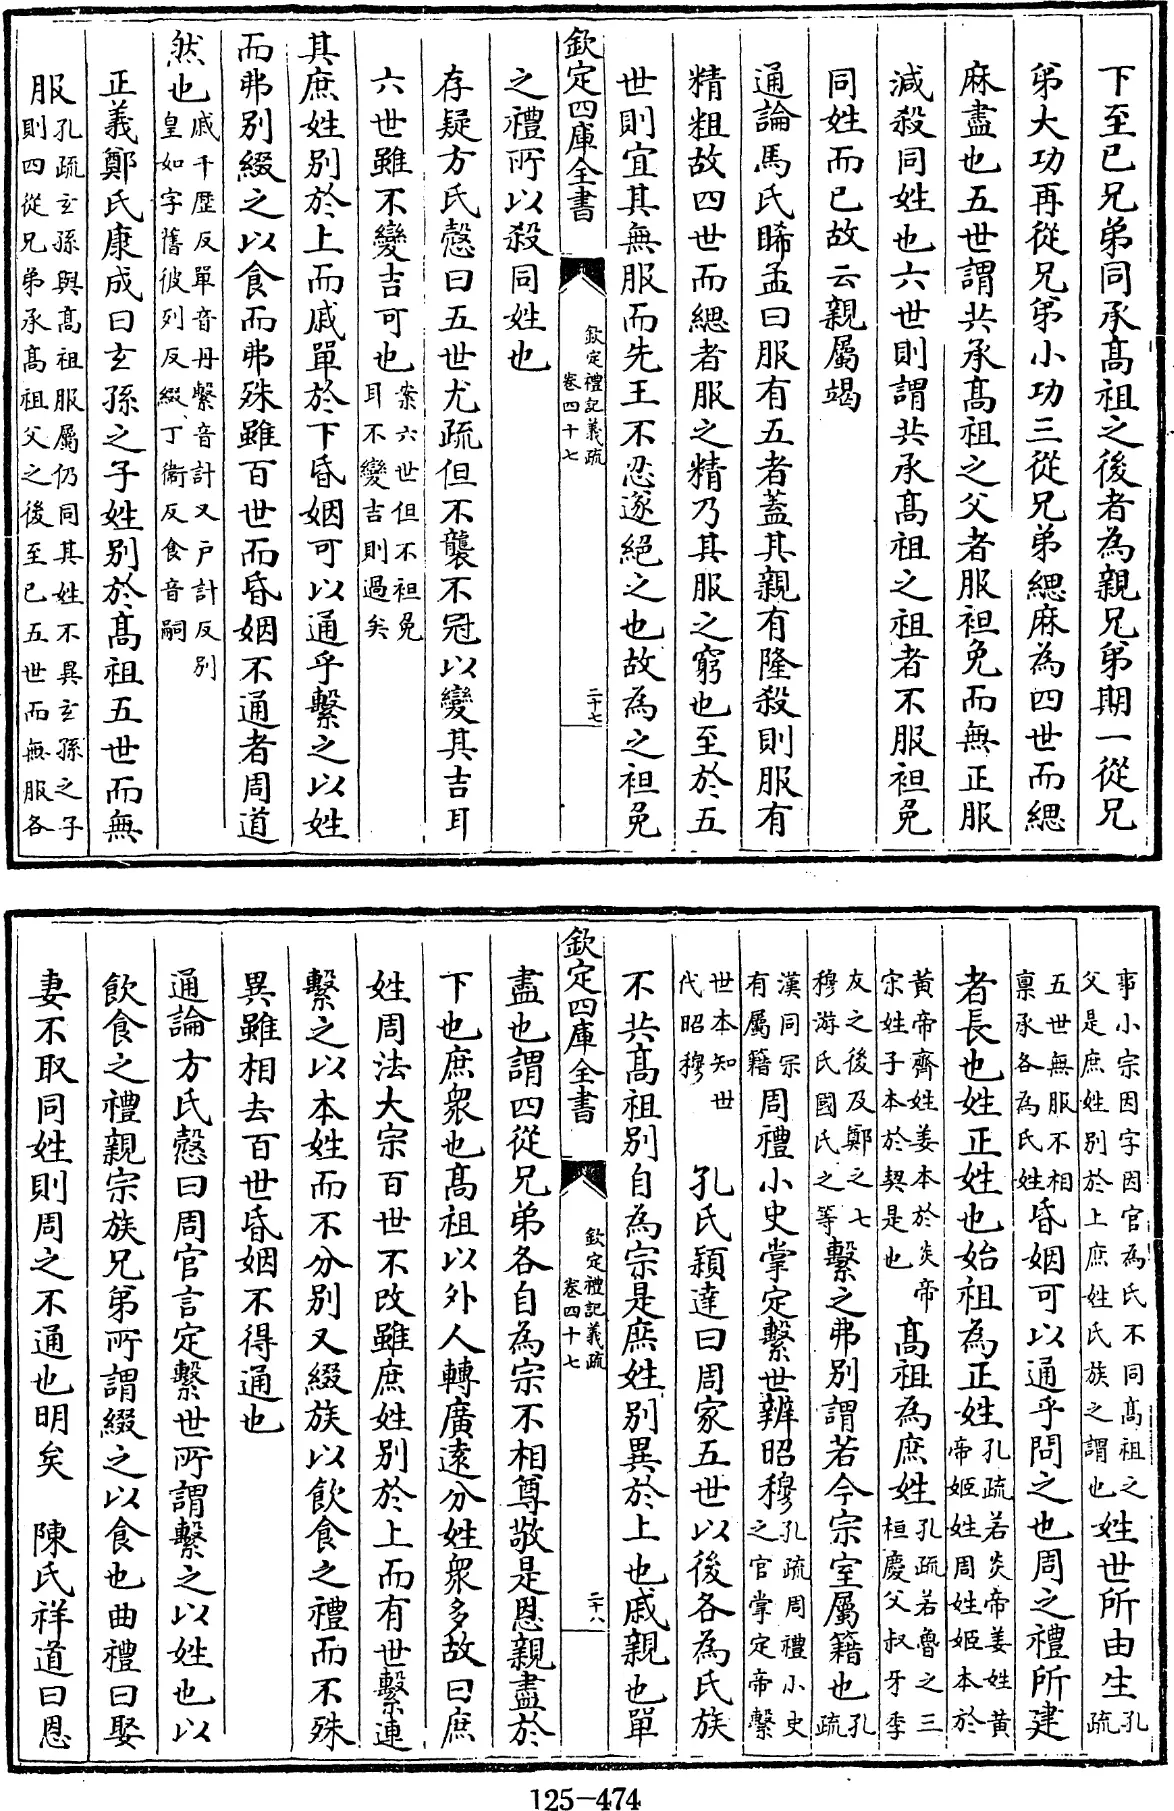 下至已兄弟同承髙祖之後者為親兄弟期一從兄
弟大功再從兄弟小功三從兄弟緦麻為四世而緦
麻盡也五世謂共承髙祖之父者服袒免而無正服
減殺同姓也六世則謂共承髙祖之祖者不服袒免
同姓而已故云親屬竭
通論馬氏晞孟曰服有五者蓋其親有隆殺則服有
精粗故四世而緦者服之精乃其服之窮也至於五
世則宜其無服而先王不忍遂絕之也故為之袒免
欽定四庫全書
欽定禮記義疏
卷四十七
二十七
之禮所以殺同姓也
存疑方氏慤曰五世尤疏但不襲不冠以變其吉耳
六世雖不變吉可也案六世但不袒免
耳不變吉則過矣
其庶姓别於上而戚單於下昏姻可以通乎繫之以姓
而弗别綴之以食而弗殊雖百世而昏姻不通者周道
然也戚千歴反單音丹繫音計又戸計反别
皇如字舊彼列反綴丁衞反食音嗣
正義鄭氏康成曰玄孫之子姓别於髙祖五世而無
服孔疏玄孫與髙祖服屬仍同其姓不異玄孫之子
則四從兄弟承髙祖父之後至已五世而無服各
事小宗因字因官為氏不同髙祖之
父是庶姓别於上庶姓氏族之謂也姓世所由生孔
疏
五世無服不相
禀承各為氏姓昏姻可以通乎問之也周之禮所建
者長也姓正姓也始祖為正姓孔疏若炎帝姜姓黄
帝姬姓周姓姬本於
黄帝齊姓姜本於炎帝
宋姓子本於契是也髙祖為庶姓孔疏若魯之三
桓慶父叔牙季
友之後及鄭之七
穆游氏國氏之等繫之弗别謂若今宗室屬籍也孔
疏
漢同宗
有屬籍周禮小史掌定繫世辨昭穆孔疏周禮小史
之官掌定帝繫
世本知世
代昭穆孔氏穎達曰周家五世以後各為氏族
不共髙祖别自為宗是庶姓别異於上也戚親也單
欽定四庫全書
欽定禮記義疏
卷四十七
二十八
盡也謂四從兄弟各自為宗不相尊敬是恩親盡於
下也庶衆也髙祖以外人轉廣逺分姓衆多故曰庶
姓周法大宗百世不改雖庶姓别於上而有世繫連
繫之以本姓而不分别又綴族以飲食之禮而不殊
異雖相去百世昏姻不得通也
通論方氏慤曰周官言定繫世所謂繫之以姓也以
飲食之禮親宗族兄弟所謂綴之以食也曲禮曰娶
妻不取同姓則周之不通也明矣 陳氏祥道曰恩
125-474